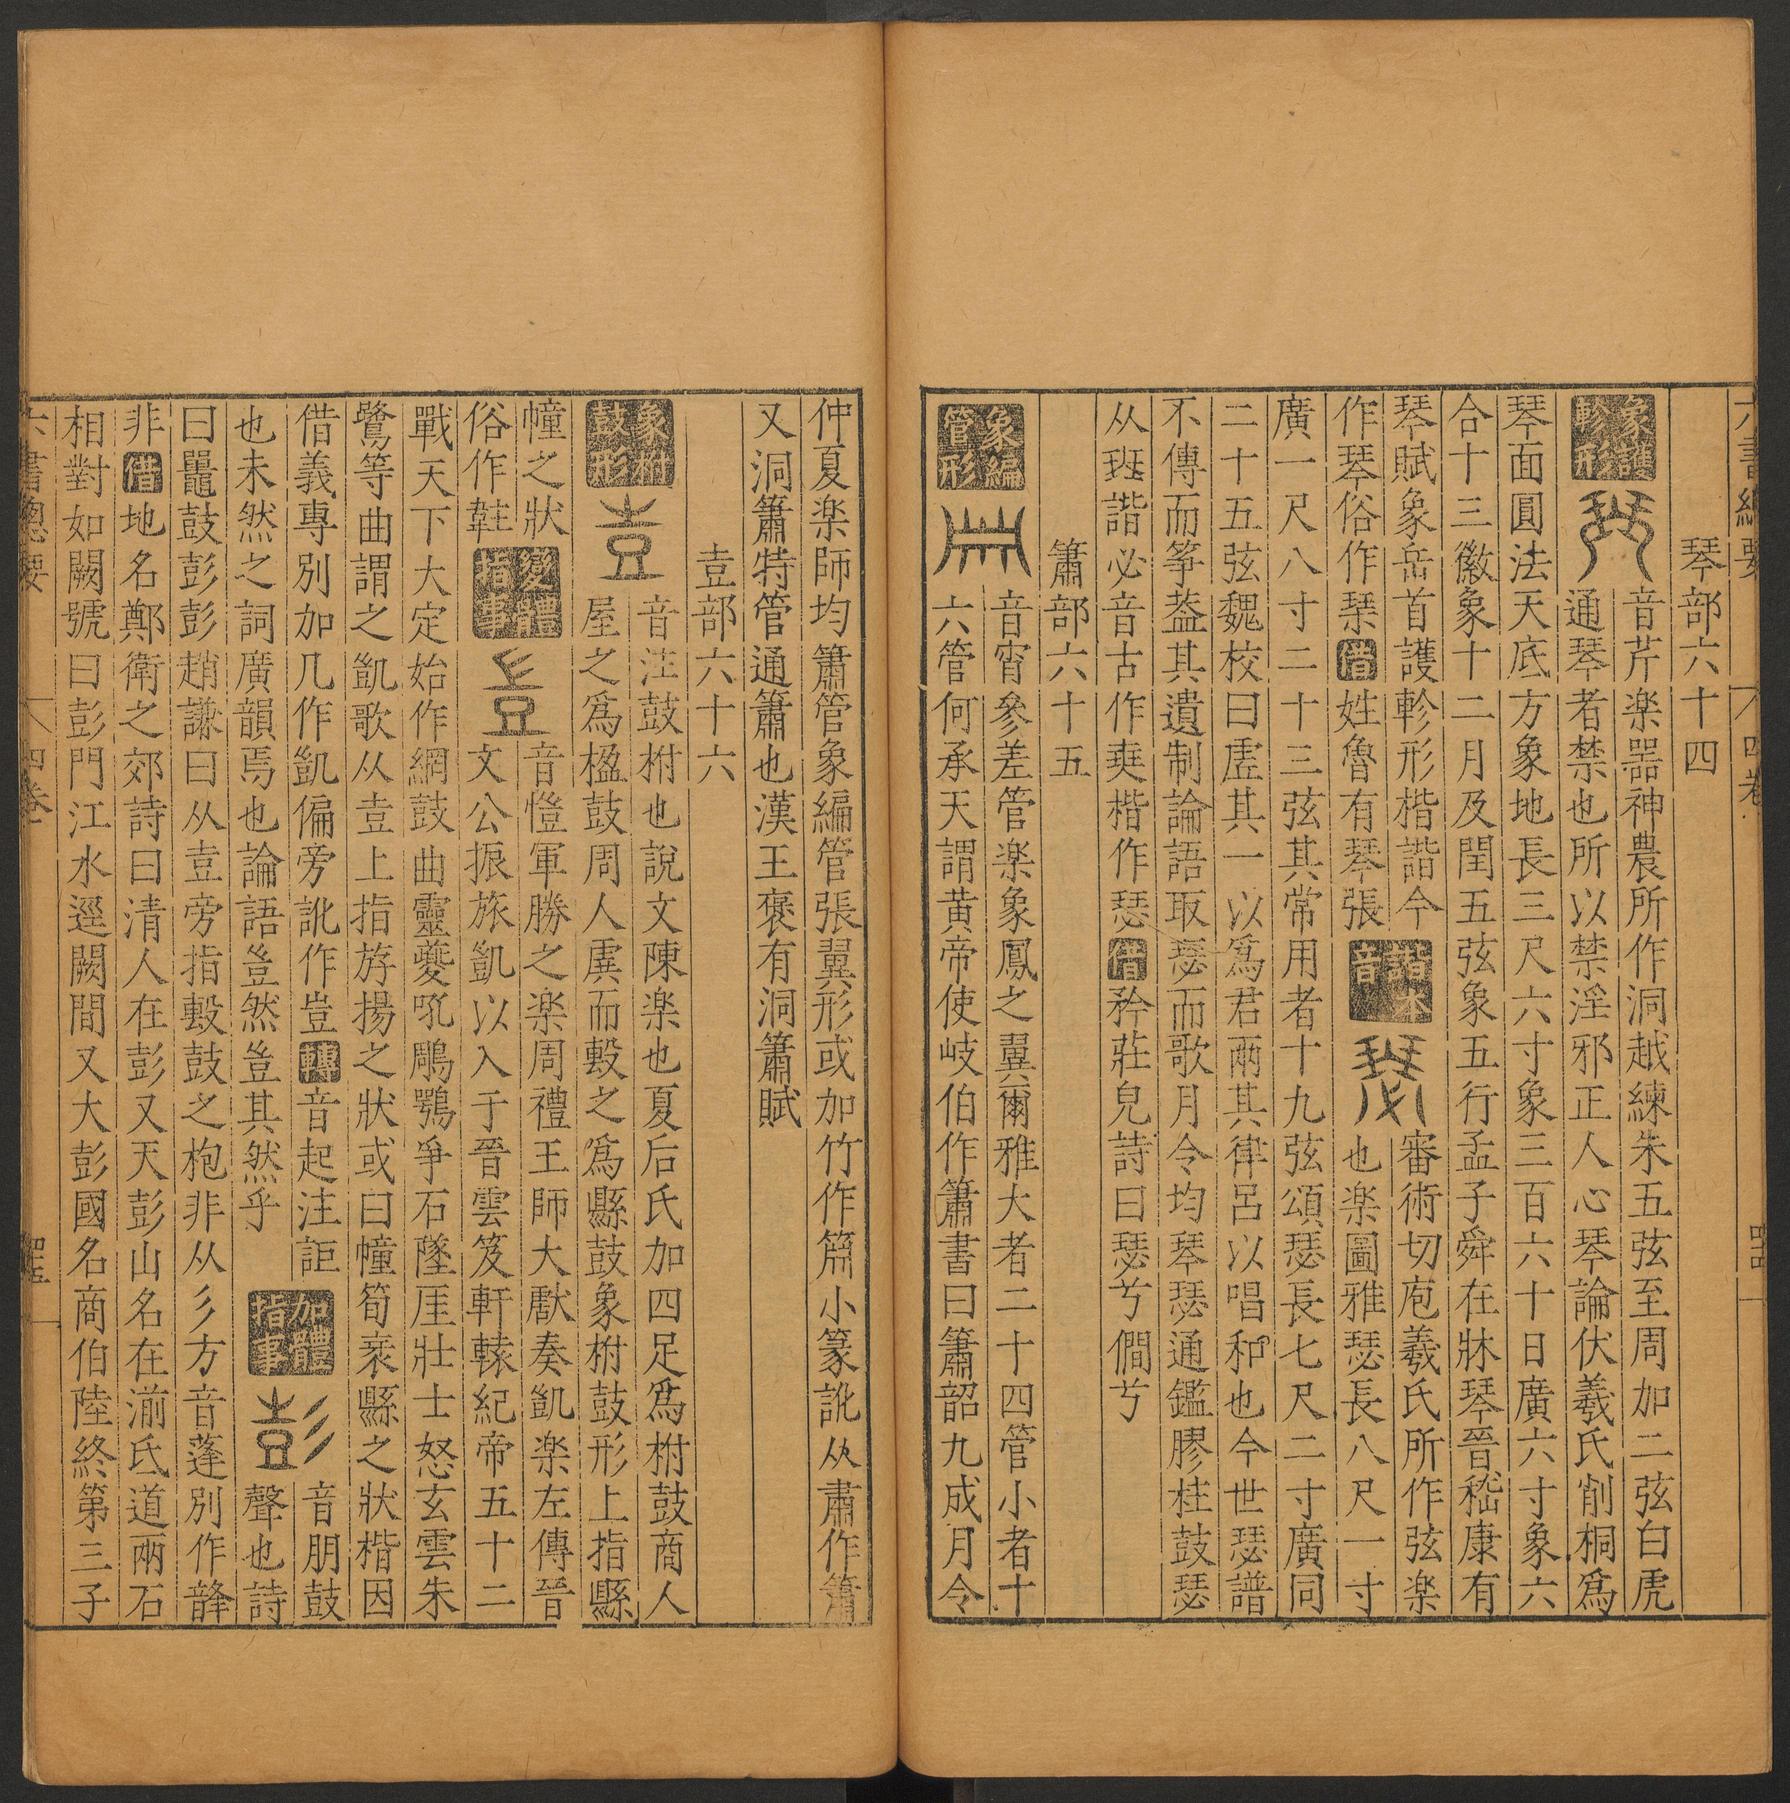 六書總要 四卷
琴部六十四
象護軫形 音芹楽器神農所作洞越練朱五弦至周加二弦白虎
通琴者禁也所以禁淫邪正人心琴論伏羲氏削桐爲
琴面圓法天底方象地長三尺六寸象三百六十日廣六寸象六
合十三徽象十二月及閏五弦象五行孟子舜在牀琴晉嵇康有
琴賦象岳首護軫形楷諧今 諧木音 審術切庖羲氏所作弦楽
作琴俗作琹借姓魯有琴張 也楽圖雅瑟長八尺一寸
廣一尺八寸二十三弦其常用者十九弦頌瑟長七尺二寸廣同
二十五弦魏校曰虛其一以爲君兩其律呂以唱和也今世瑟譜
不傳而筝葢其遺制論語取瑟而歌月令均琴瑟通鑑膠柱鼓瑟
从珡諧必音古作爽楷作瑟借矜莊皃詩曰瑟兮僩兮
簫部六十五
象編管形 音宵參差管楽象鳳之翼爾雅大者二十四管小者十
六管何承天謂黄帝使岐伯作簫書曰簫韶九成月令
仲夏楽師均簫管象編管張翼形或加竹作簫小篆訛从肅作簫
又洞簫特管通簫也漢王褒有洞簫賦
壴部六十六
象柎鼓形 壴 音注鼓柎也說文陳楽也夏后氏加四足爲柎鼓商人
屋之爲楹鼓周人虡而毄之爲縣鼓象柎鼓形上指縣
幢之狀 變體指事 音愷軍勝之楽周禮王師大獻奏凱楽左傳晉
俗作尌 文公振旅凱以入于晉雲笈軒轅紀帝五十二
戰天下大定始作綱鼓曲靈夔吼鵰鶚爭石墜厓壯士怒玄雲朱
鷺等曲謂之凱歌从壴上指斿揚之狀或曰幢筍乘縣之狀楷因
借義專別加几作凱偏旁訛作豈轉音起注詎 加體指事 彭 音朋鼓
也未然之詞廣韻焉也論語豈然豈其然乎 聲也詩
曰鼉鼓彭彭趙謙曰从壴旁指毄鼓之枹非从彡方音蓬別作韸
非借地名鄭衛之郊詩曰清人在彭又天彭山名在湔氐道兩石
相對如闕號曰彭門江水逕闕間又大彭國名商伯陸終第三子
六書總要 四卷